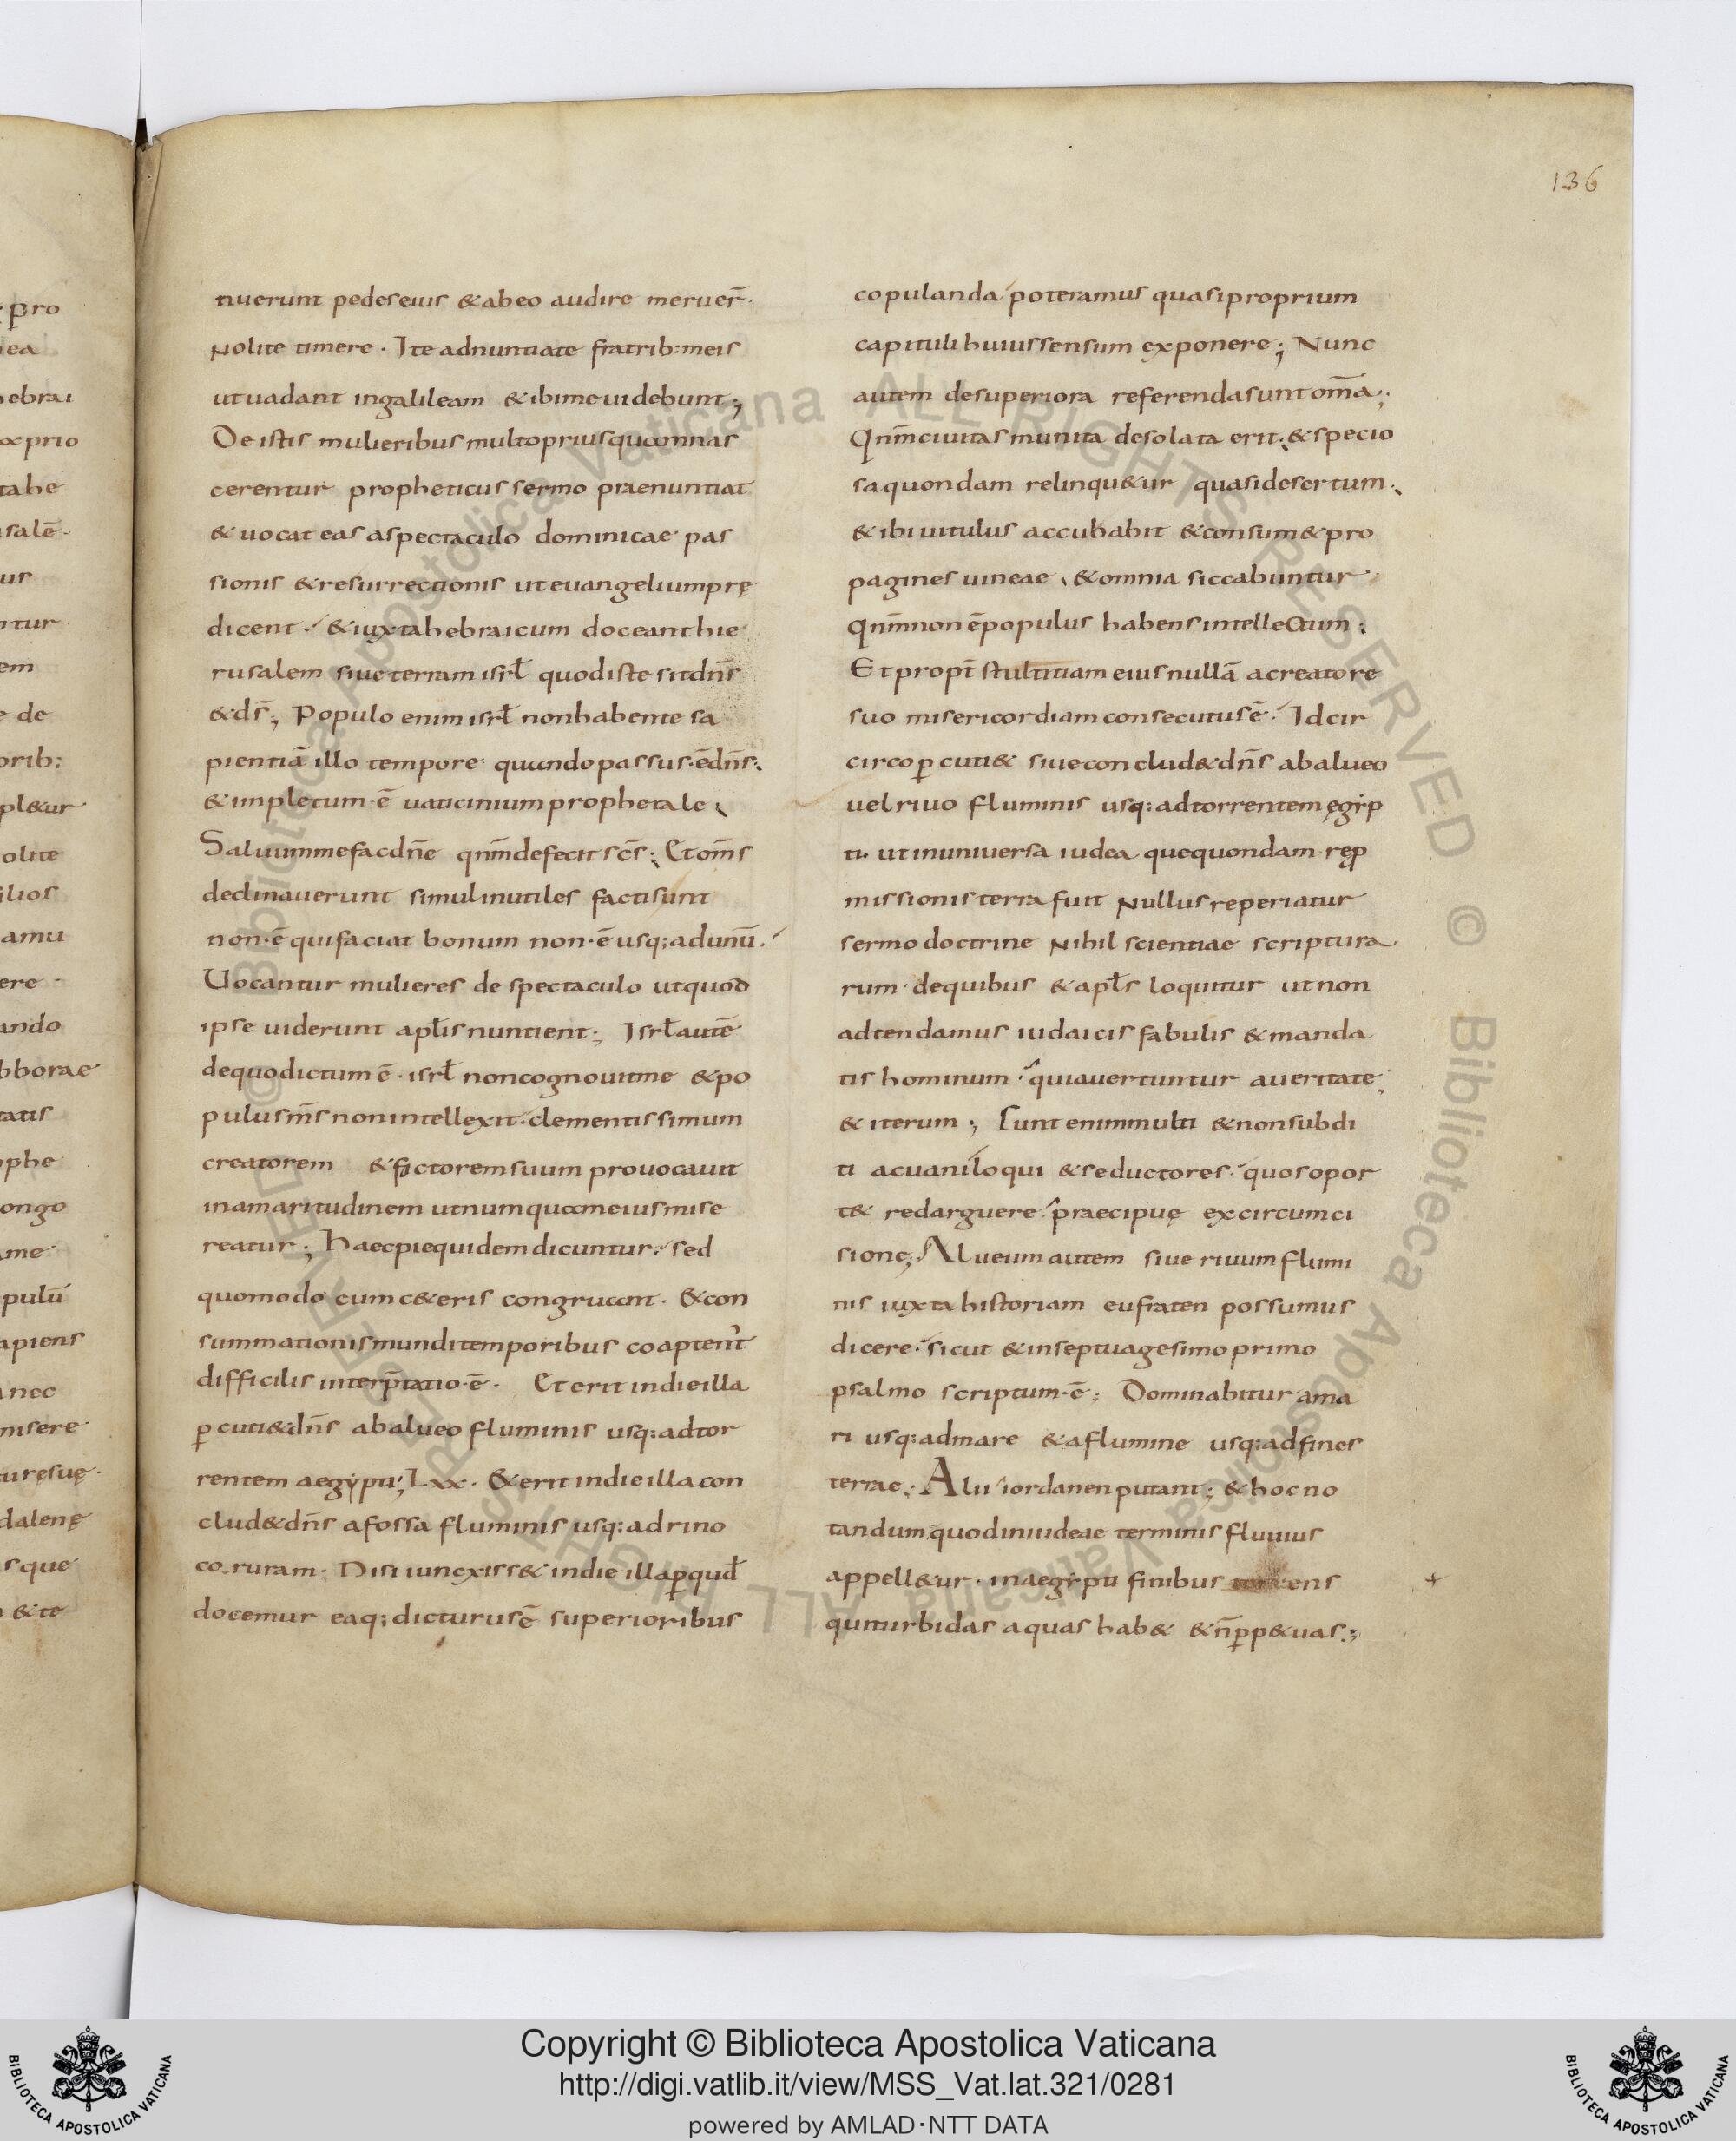 136
nuerunt pedes eius & ab eo audire meruer̄.
Nolite timere. Ite adnuntiate fratrib: meis
ut uadant in galileam & ibi me uidebunt;
De istis mulieribus multo prius quam nas
cerentur propheticus sermo praenuntiat
& uocat eas a spectaculo dominicae pas
sionis & resurrectionis ut euangelium prę
dicent. & iuxta hebraicum doceant hie
rusalem siue terram isrł quod iste sit dn̄s
& ds̄; Populo enim isrł non habente sa
pientiā illo tempore quando passus ē dn̄s.
& impletum ē uaticinium prophetale;
Saluum me fac dn̄e qnm̄ defecit sc̄s; Et om̄s
declinauerunt simul inutiles facti sunt
non ē qui faciat bonum non ē usq; ad unū.
Uocantur mulieres de spectaculo ut quod
ipse uiderunt apłis nuntient; Isrł autē
de quo dictum ē. isrł non cognouit me & po
pulus m̄s non intellexit. clementissimum
creatorem & factorem suum prouocauit
in amaritudinem ut numquam eius mise
reatur; Haec pie quidem dicuntur. sed
quomodo cum c&eris congruant. & con
summationis mundi temporibus coaptent̉
difficilis interp̄tatio ē. Et erit in die illa
ꝑcuti& dn̄s ab alueo fluminis usq: ad tor
rentem aegypti; Lxx. & erit in die illa con
clud& dn̄s a fossa fluminis usq: ad rino
coruram; Nisi iuncxiss& in die illa ꝑ quđ
docemur eaq; dicturus ē superioribus
copulanda poteramus quasi proprium
capituli huius sensum exponere; Nunc
autem de superiora referenda sunt om̄a;
Qnm̄ ciuitas munita desolata erit. & specio
sa quondam relinqu&ur quasi desertum.
& ibi uitulus accubabit & consum& pro
pagines uineae, & omnia siccabuntur.
Qnm̄ non ē populus habens intellectum;
Et propt̄ stultitiam eius nullā a creatore
suo misericordiam consecutus ē. Idcir
circo ꝑcuti& siue conclud& dn̄s ab alueo
uel riuo fluminis usq: ad torrentem ęgip
ti. ut in uniuersa iudea que quondam reꝓ
missionis terra fuit Nullus reperiatur
sermo doctrine Nihil scientiae scriptura
rum. de quibus & apłs loquitur ut non
adtendamus iudaicis fabulis & manda
tis hominum. qui auertuntur a ueritate;
& iterum; Sunt enim multi & non subdi
ti ac uaniloqui & seductores. quos opor
t& redarguere. praecipuę ex circumci
sione; Alueum autem siue riuum flumi
nis iuxta historiam eufraten possumus
dicere. sicut & in septuagesimo primo
psalmo scriptum ē; Dominabitur a ma
ri usq: ad mare & a flumine usq: ad fines
terrae; Alii iordanen putant; & hoc no
tandum quod in iudeae terminis fluuius
appell&ur. in aegipti finibus torrens
qui turbidas aquas hab& & n̄ ꝑp&uas;
Copyright © Biblioteca Apostolica Vaticana
http://digi.vatlib.it/view/MSS_Vat.lat.321/0281
powered by AMLAD·NTT DATA
BIBLIOTECA APOSTOLICA VATICANA
BIBLIOTECA APOSTOLICA VATICANA